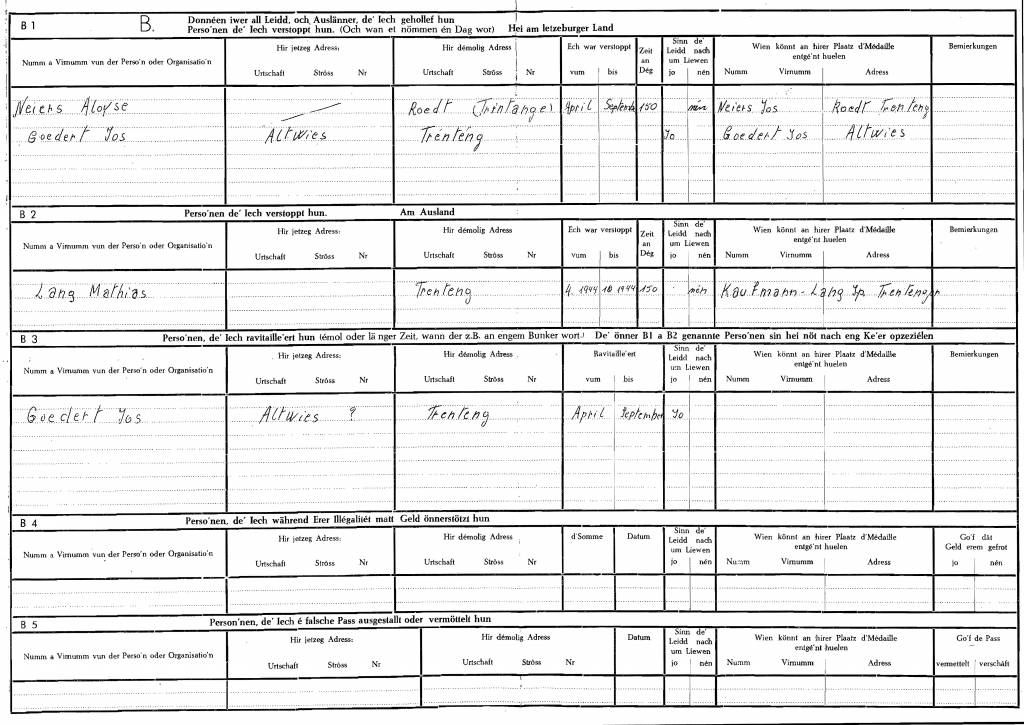 B 1 B. Donnéen iwer all Leidd, och Auslänner, de' Iech gehollef hun
Perso'nen de' Iech verstoppt hun. (Och wan et nömmen én Dag wor) Hei am letzeburger Land
Numm a Virnumm vun der Perso'n oder Organisatio'n
Hir jetzeg Adress:
Urtschaft Ströss Nr
Hir démolig Adress
Urtschaft Ströss Nr
Ech war verstoppt
vum bis
Zeit
an
Dég
Sinn de'
Leidd nach
um Liewen
jo nén
Wien könnt an hirer Plaatz d'Médaille
entgé'nt huelen
Numm Virnumm Adress
Bemierkungen
Neiers Aloyse — Roedt (Trintange) April Septembe 150 nén Neiers Jos Roedt Trenteng
Goedert Jos Altwies Trenténg Jo Goedert Jos Altwies
B 2 Perso'nen de' Iech verstoppt hun. Am Ausland
Numm a Virnumm vun der Perso'n oder Organisatio'n
Hir jetzeg Adress:
Urtschaft Ströss Nr
Hir démolig Adress
Urtschaft Ströss Nr
Ech war verstoppt
vum bis
Zeit
an
Dég
Sinn de'
Leidd nach
um Liewen
jo nén
Wien könnt an hirer Plaatz d'Médaille
entgé'nt huelen
Numm Virnumm Adress
Bemierkungen
Lang Mathias Trenteng 4. 1944 10 1944 150 nén Kaufmann - Lang Jp.
B 3 Perso'nen, de' Iech ravitaille'ert hun (émol oder länger Zeit, wann der z.B. an engem Bunker wort.) De' önner B1 a B2 genannte Perso'nen sin hei nöt nach eng Ke'er opzeziélen
Numm a Virnumm vun der Perso'n oder Organisatio'n
Hir jetzeg Adress:
Urtschaft Ströss Nr
Hir démolig Adress
Urtschaft Ströss Nr
Ravitaille'ert
vum bis
Sinn de'
Leidd nach
um Liewen
jo nén
Wien könnt an hirer Plaatz d'Médaille
entgé'nt huelen
Numm Virnumm Adress
Bemierkungen
Goedert Jos Altwies ? Trenteng April September Jo
B 4 Perso'nen, de' Iech während Erer Illégalitét matt Geld önnerstötzt hun
Numm a Virnumm vun der Perso'n oder Organisatio'n
Hir jetzeg Adress:
Urtschaft Ströss Nr
Hir démolig Adress
Urtschaft Ströss Nr
d'Somme Datum
Sinn de'
Leidd nach
um Liewen
jo nén
Wien könnt an hirer Plaatz d'Médaille
entgé'nt huelen
Numm Virnumm Adress
Go'f dât
Geld erem gefrot
jo nén
B 5 Person'nen, de' Iech é falsche Pass ausgestallt oder vermöttelt hun
Numm a Virnumm vun der Perso'n oder Organisatio'n
Hir jetzeg Adress:
Urtschaft Ströss Nr
Hir démolig Adress
Urtschaft Ströss Nr
Datum
Sinn de'
Leidd nach
um Liewen
jo nén
Wien könnt an hirer Plaatz d'Médaille
entgé'nt huelen
Numm Virnumm Adress
Go'f de Pass
vermettelt verschâft